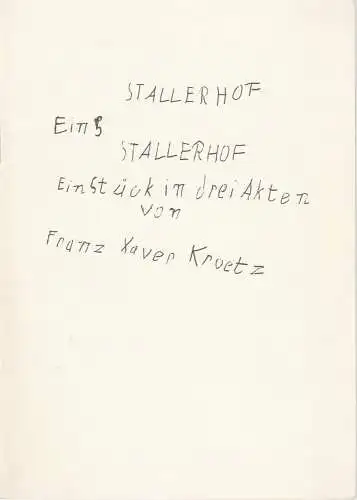 STALLERHOF
Einß
STALLERHOF
Ein Stück in drei Akten
von
Franz Xaver Kroetz